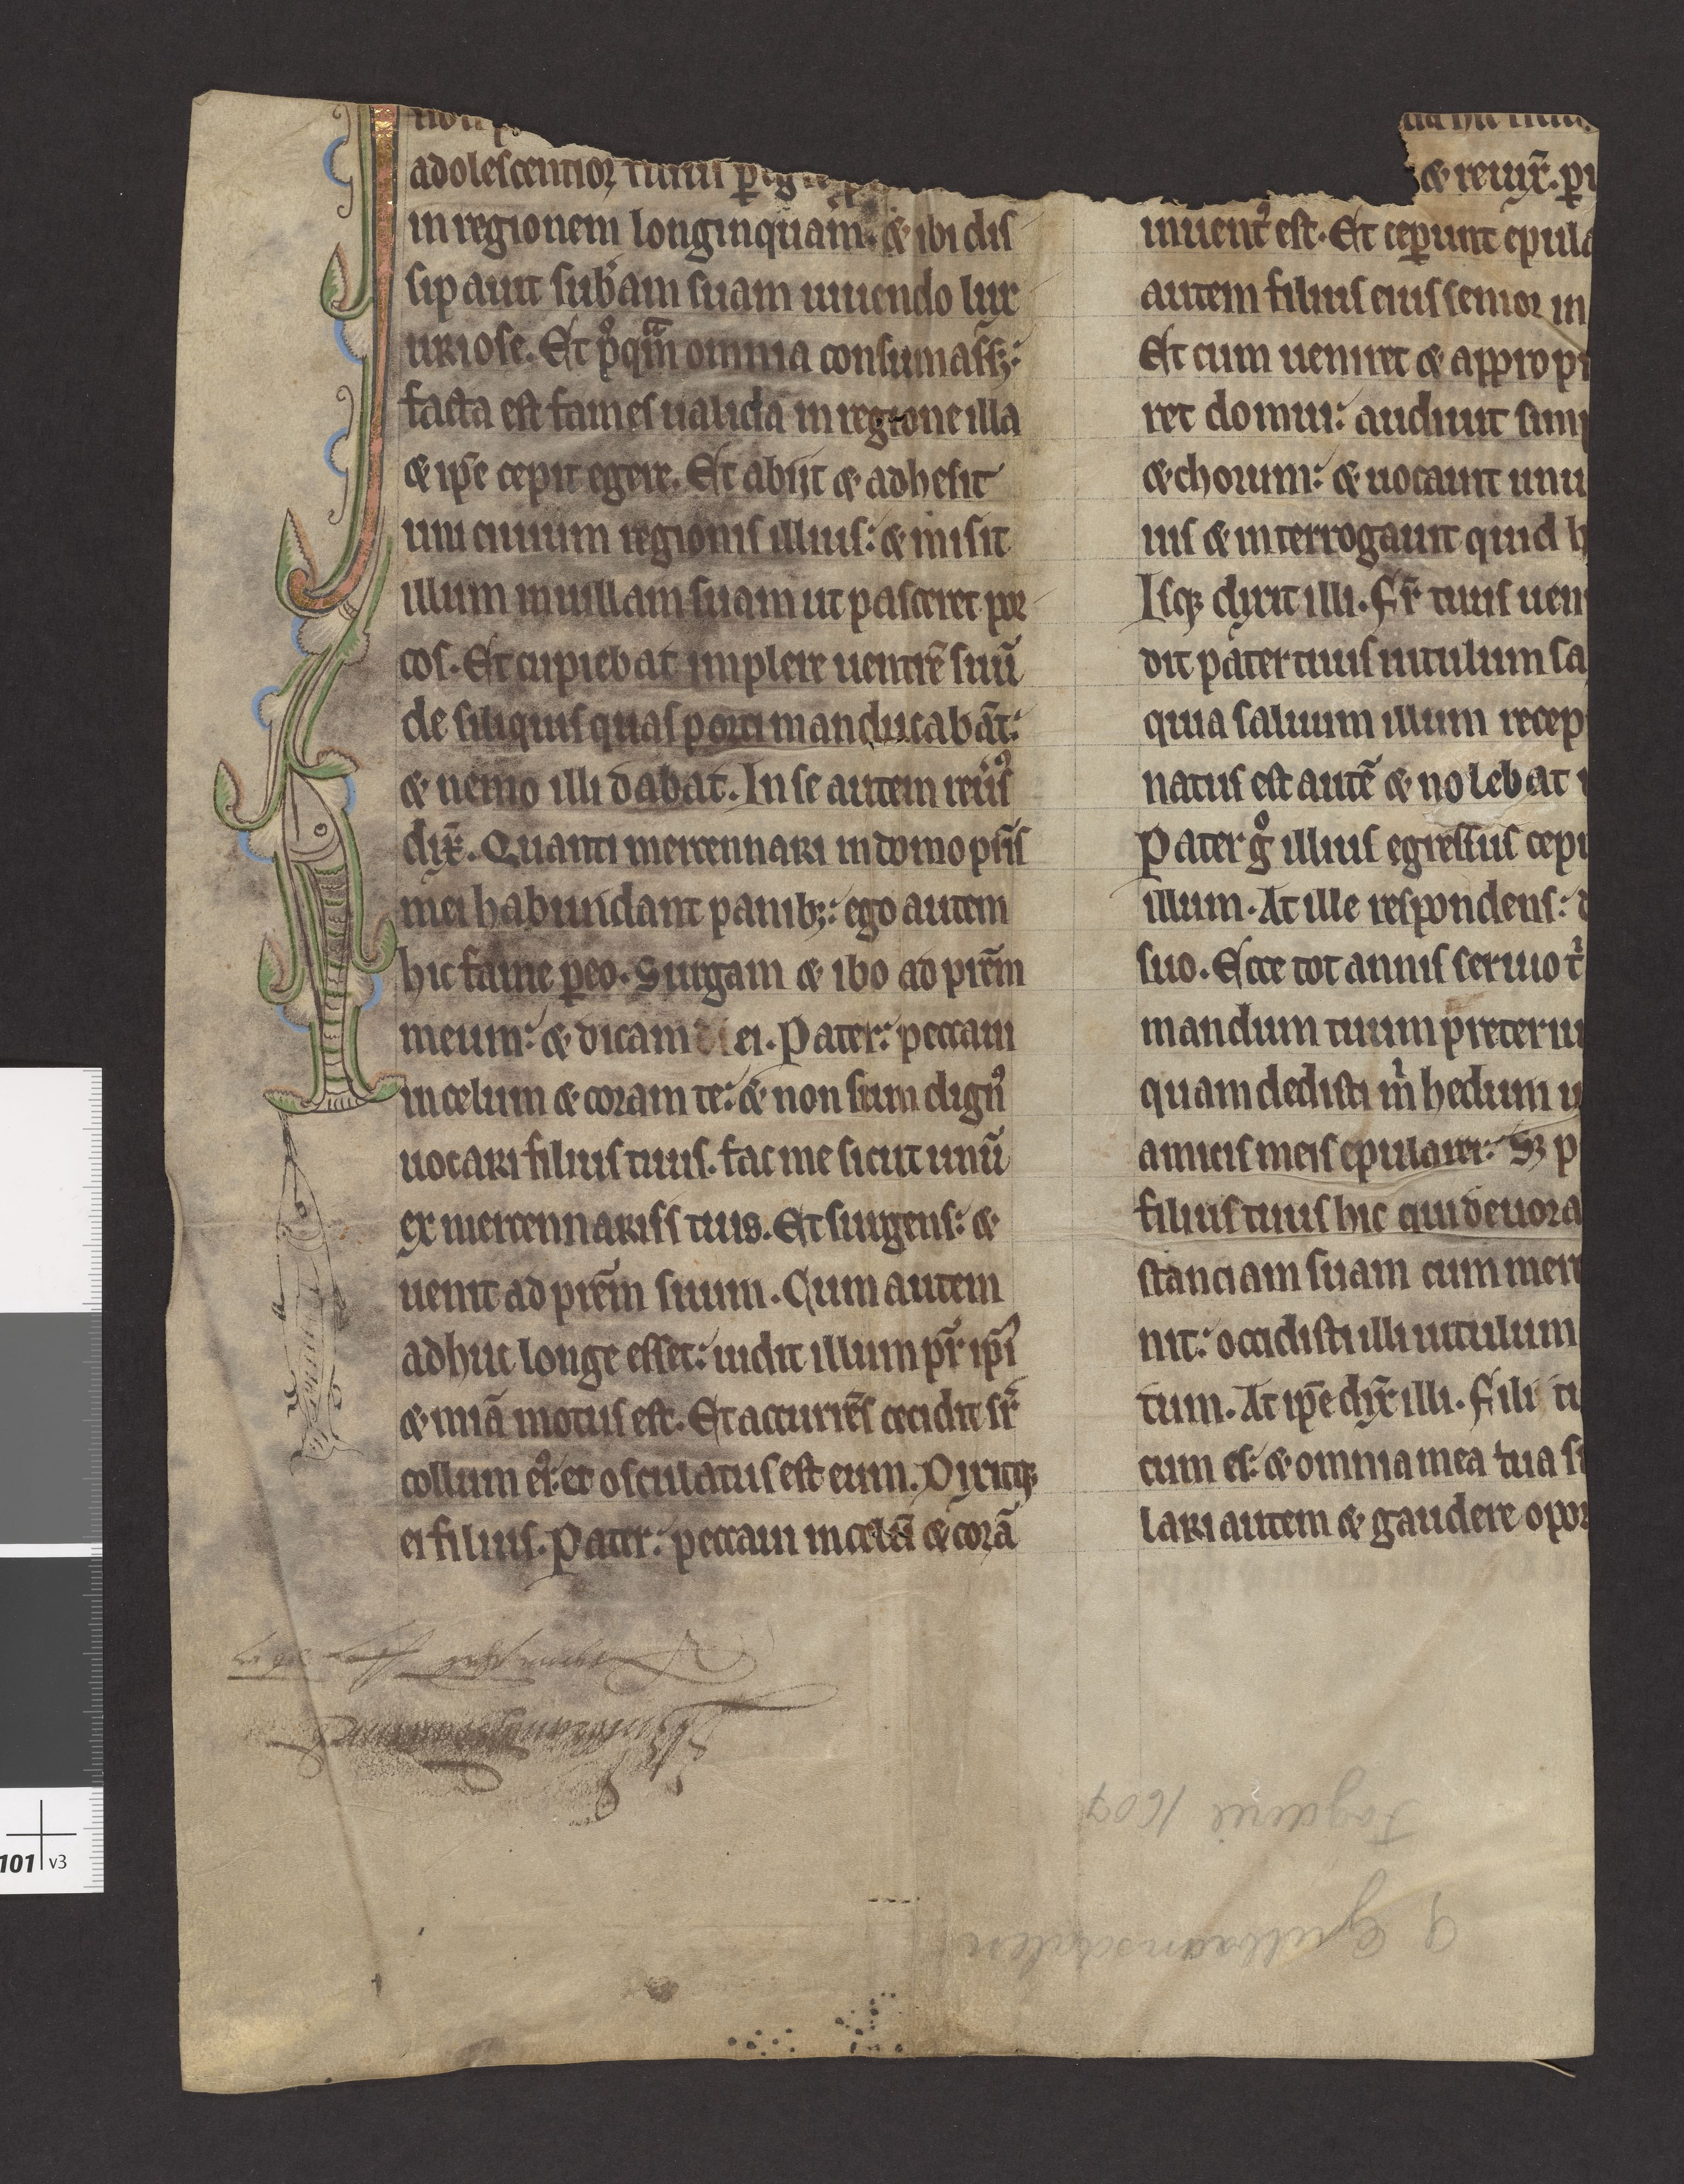 adolescentioꝝ
in regionem longinquam. & ibi dis
sipauit sub̄am suam uiuendo lux
uriose. Et p᷒qm̄ omnia consumass&:
facta est fames ualida in regione illa
& ipse cepit egere. Et abiit & adhesit
uni ciuium regionis illius: & misit
illum in uillam suam ut pasceret por
cos. Et cupiebat implere uentrē suū
de siliquis quas porci manducabāt:
& nemo illi dabat. In se autem reu᷑sꝰ
dix̄. Quanti mercennarii in domo pr̄is
mei habundant panibꝫ: ego autem
hic fame ꝑeo. Surgam & ibo ad prēm
meum: & dicam ei. Pater: peccaui
in celum & coram te: & non sum dignꝰ
uocari filius tuus. fac me sicut unū
ex mercennariis tuis. Et surgens: &
uenit ad prēm suum. Cum autem
adhuc longe esset: uidit illum pr̄ ipī
& mīa motus est. Et accurrēs cecidit sr̄
collum eiꝰ: et osculatus est eum. Dixitqꝫ
ei filius. Pater: peccaui in celū & corā
& reuix̄. ꝑi
inuentꝰ est. Et ceꝑunt epula
autem filius eius senior in
Et cum ueniret & appropi
ret domui: audiuit sim
& chorum: & uocauit unu
uis & interrogauit quid h
Isqꝫ dixit illi. Fr̄ tuus uen
dit pater tuus uitulum sa
quia saluum illum recep
natus est autē & nolebat i
Pater gͦ illius egressus cepi
illum. At ille respondens: d
suo. Ecce tot annis seruio tͥ
mandum tuum preteriu
quam dedisti mͥ hedum u
amicis meis epularer: Sꝫ p
filius tuus hic qui deuora
stanciam suam cum mere
nit: occidisti illi uitulum
tum. At ipē dix̄ illi. Fili tu
cum es: & omnia mea tua s
lari autem & gaudere opor
Fogderie 1607
q Gulbransdalen